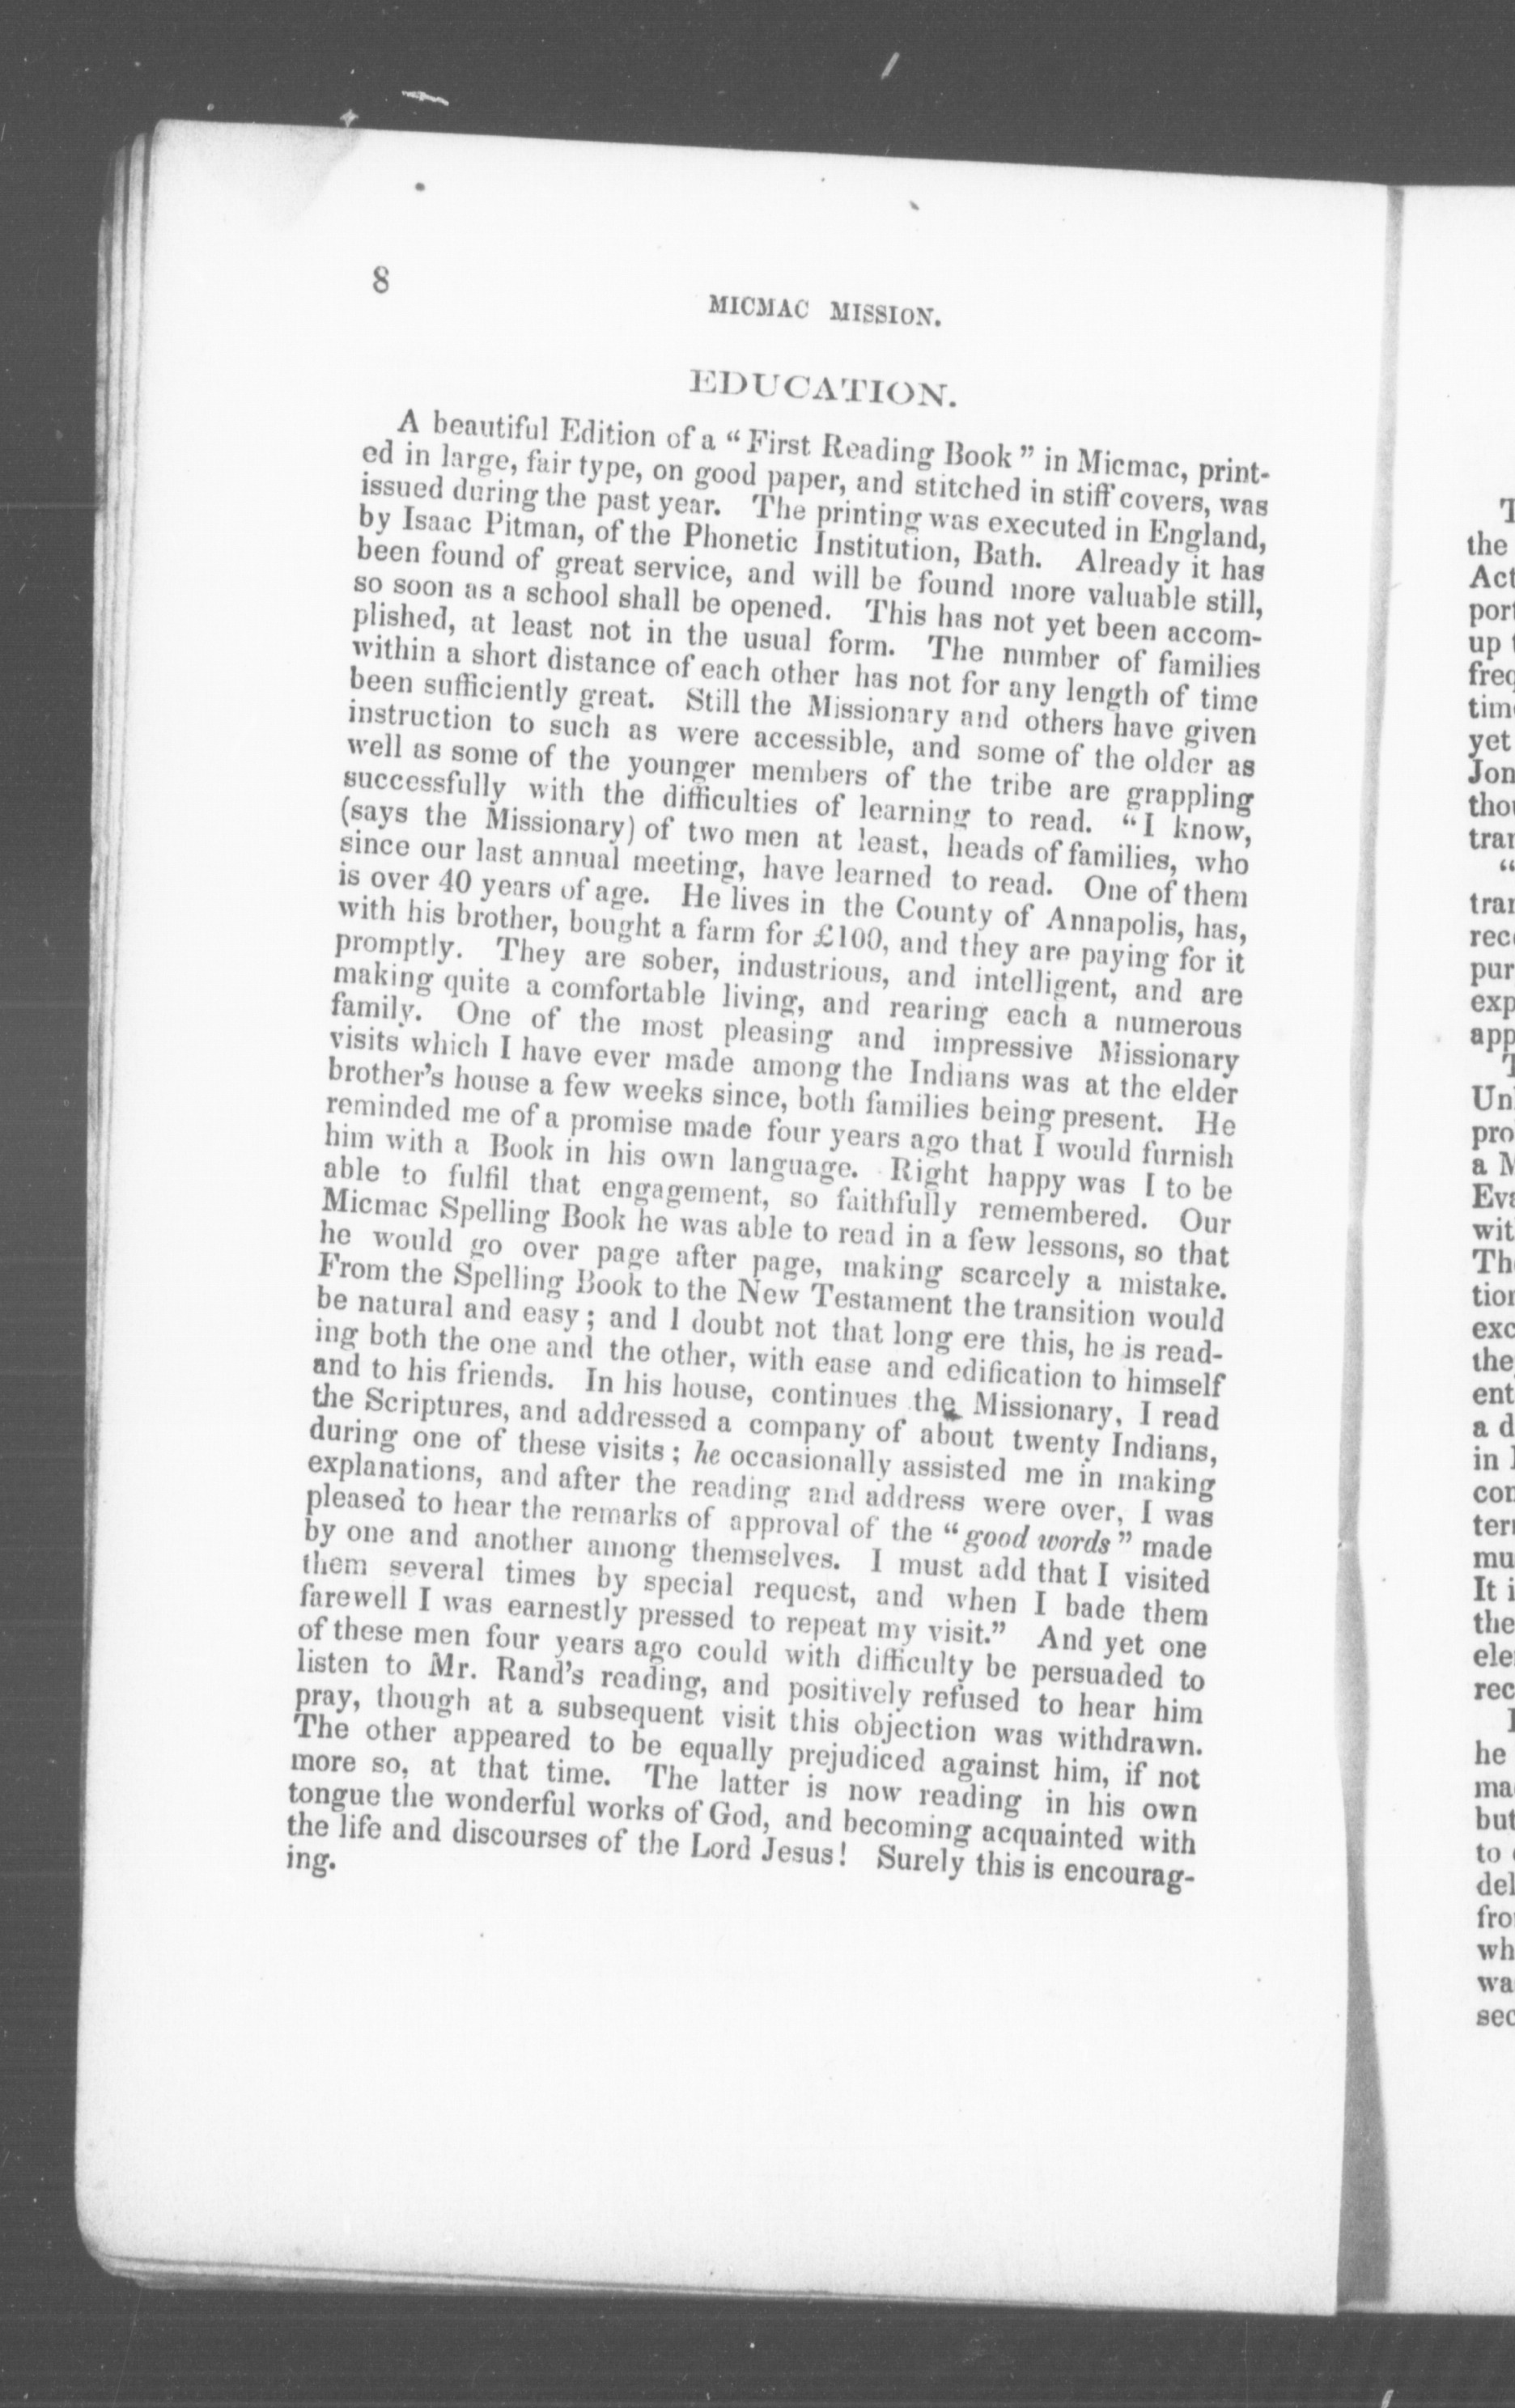 8
MICMAC MISSION.
EDUCATION.
A beautiful Edition of a “ First Reading Book ” in Micmac, print-
ed in large, fair type, on good paper, and stitched in stiff covers, was
issued during the past year. The printing was executed in England,
by Isaac Pitman, of the Phonetic Institution, Bath. Already it has
been found of great service, and will be found more valuable still,
so soon as a school shall be opened. This has not yet been accom-
plished, at least not in the usual form. The number of families
within a short distance of each other has not for any length of time
been sufficiently great. Still the Missionary and others have given
instruction to such as were accessible, and some of the older as
well as some of the younger members of the tribe are grappling
successfully with the difficulties of learning to read. “I know,
(says the Missionary) of two men at least, heads of families, who
since our last annual meeting, have learned to read. One of them
is over 40 years of age. He lives in the County of Annapolis, has,
with his brother, bought a farm for £100, and they are paying for it
promptly. They are sober, industrious, and intelligent, and are
making quite a comfortable living, and rearing each a numerous
family. One of the most pleasing and impressive Missionary
visits which I have ever made among the Indians was at the elder
brother’s house a few weeks since, both families being present. He
reminded me of a promise made four years ago that I would furnish
him with a Book in his own language. Right happy was I to be
able to fulfil that engagement, so faithfully remembered. Our
Micmac Spelling Book he was able to read in a few lessons, so that
he would go over page after page, making scarcely a mistake.
From the Spelling Book to the New Testament the transition would
be natural and easy ; and I doubt not that long ere this, he is read-
ing both the one and the other, with ease and edification to himself
and to his friends. In his house, continues the Missionary, I read
the Scriptures, and addressed a company of about twenty Indians,
during one of these visits ; he occasionally assisted me in making
explanations, and after the reading and address were over, I was
pleased to hear the remarks of approval of the “ good words ” made
by one and another among themselves. I must add that I visited
them several times by special request, and when I bade them
farewell I was earnestly pressed to repeat my visit.” And yet one
of these men four years ago could with difficulty be persuaded to
listen to Mr. Rand’s reading, and positively refused to hear him
pray, though at a subsequent visit this objection was withdrawn.
The other appeared to be equally prejudiced against him, if not
more so, at that time. The latter is now reading in his own
tongue the wonderful works of God, and becoming acquainted with
the life and discourses of the Lord Jesus! Surely this is encourag-
ing.